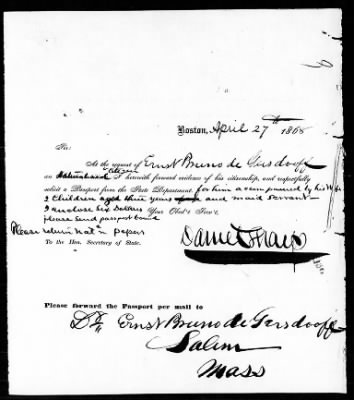 Boston, April 27th 1865
Sir:
At the request of Ernst Bruno de Gersdorff
an citizen I herewith forward evidence of his citizenship, and respectfully
solicit a Passport from the State Department. for him accompanied by his Wife
2 Children aged three years and maid servant
I enclose six Dollars Your Obd't Serv't.
please send passport bound
Please return Nat'n papers
To the Hon. Secretary of State.
Daniel Sharp
Please forward the Passport per mail to
Dr Ernst Bruno de Gersdorff
Salem
Mass